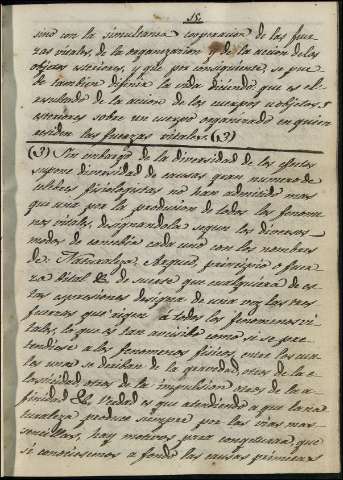 15.
sino con la simultanea cooperacion de las fuer-
zas vitales, de la organizacion y de la accion de los
objetos esteriores, y que por consiguiente, se pue-
de tambien difinir la vida diciendo que es el
resultado de la accion de los cuerpos u objetos
esteriores sobre un cuerpo organizado en quien
residen las fuerzas vitales. (3)
(3) Sin embargo de la diversidad de los efectos
supone diversidad de causas gran numero de
celebres fisiologistas no han admitido mas
que una por la produccion de todos los fenome-
nos vitales, designandola segun los diversos
modos de concebir cada uno con los nombres
de Naturaleza, Arqueo, principio o fuer-
za Vital &. de suerte que cualquiera de es-
tas espresiones designa de una vez las tres
fuerzas que asigno a todos los fenomenos vi-
tales, lo que es tan como si se pre-
tendiese a los fenomenos fisicos, entre los cua-
les unos se derivan de la gravedad, otros de la e-
lasticidad, otros de la impulsion, otros de la a-
finidad &. Verdad es que atendiendo a que la na-
turaleza produce siempre por las vias mas
sencillas, hay motivos para congeturar, que
si conociesemos a fondo las causas primeras